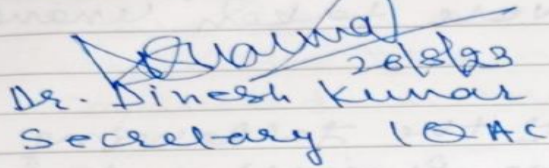 Sharma
26/8/23
Dr. Dinesh Kumar
Secretary IQAC